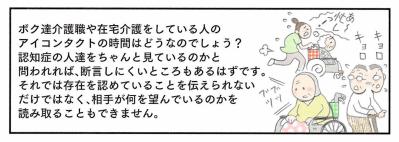 ボク達介護職や在宅介護をしている人の
アイコンタクトの時間はどうなのでしょう？
認知症の人達をちゃんと見ているのかと
問われれば、断言しにくいところもあるはずです。
それでは存在を認めていることを伝えられない
だけではなく、相手が何を望んでいるのかを
読み取ることもできません。
キョロ
キョロ
ブツ
ブツ